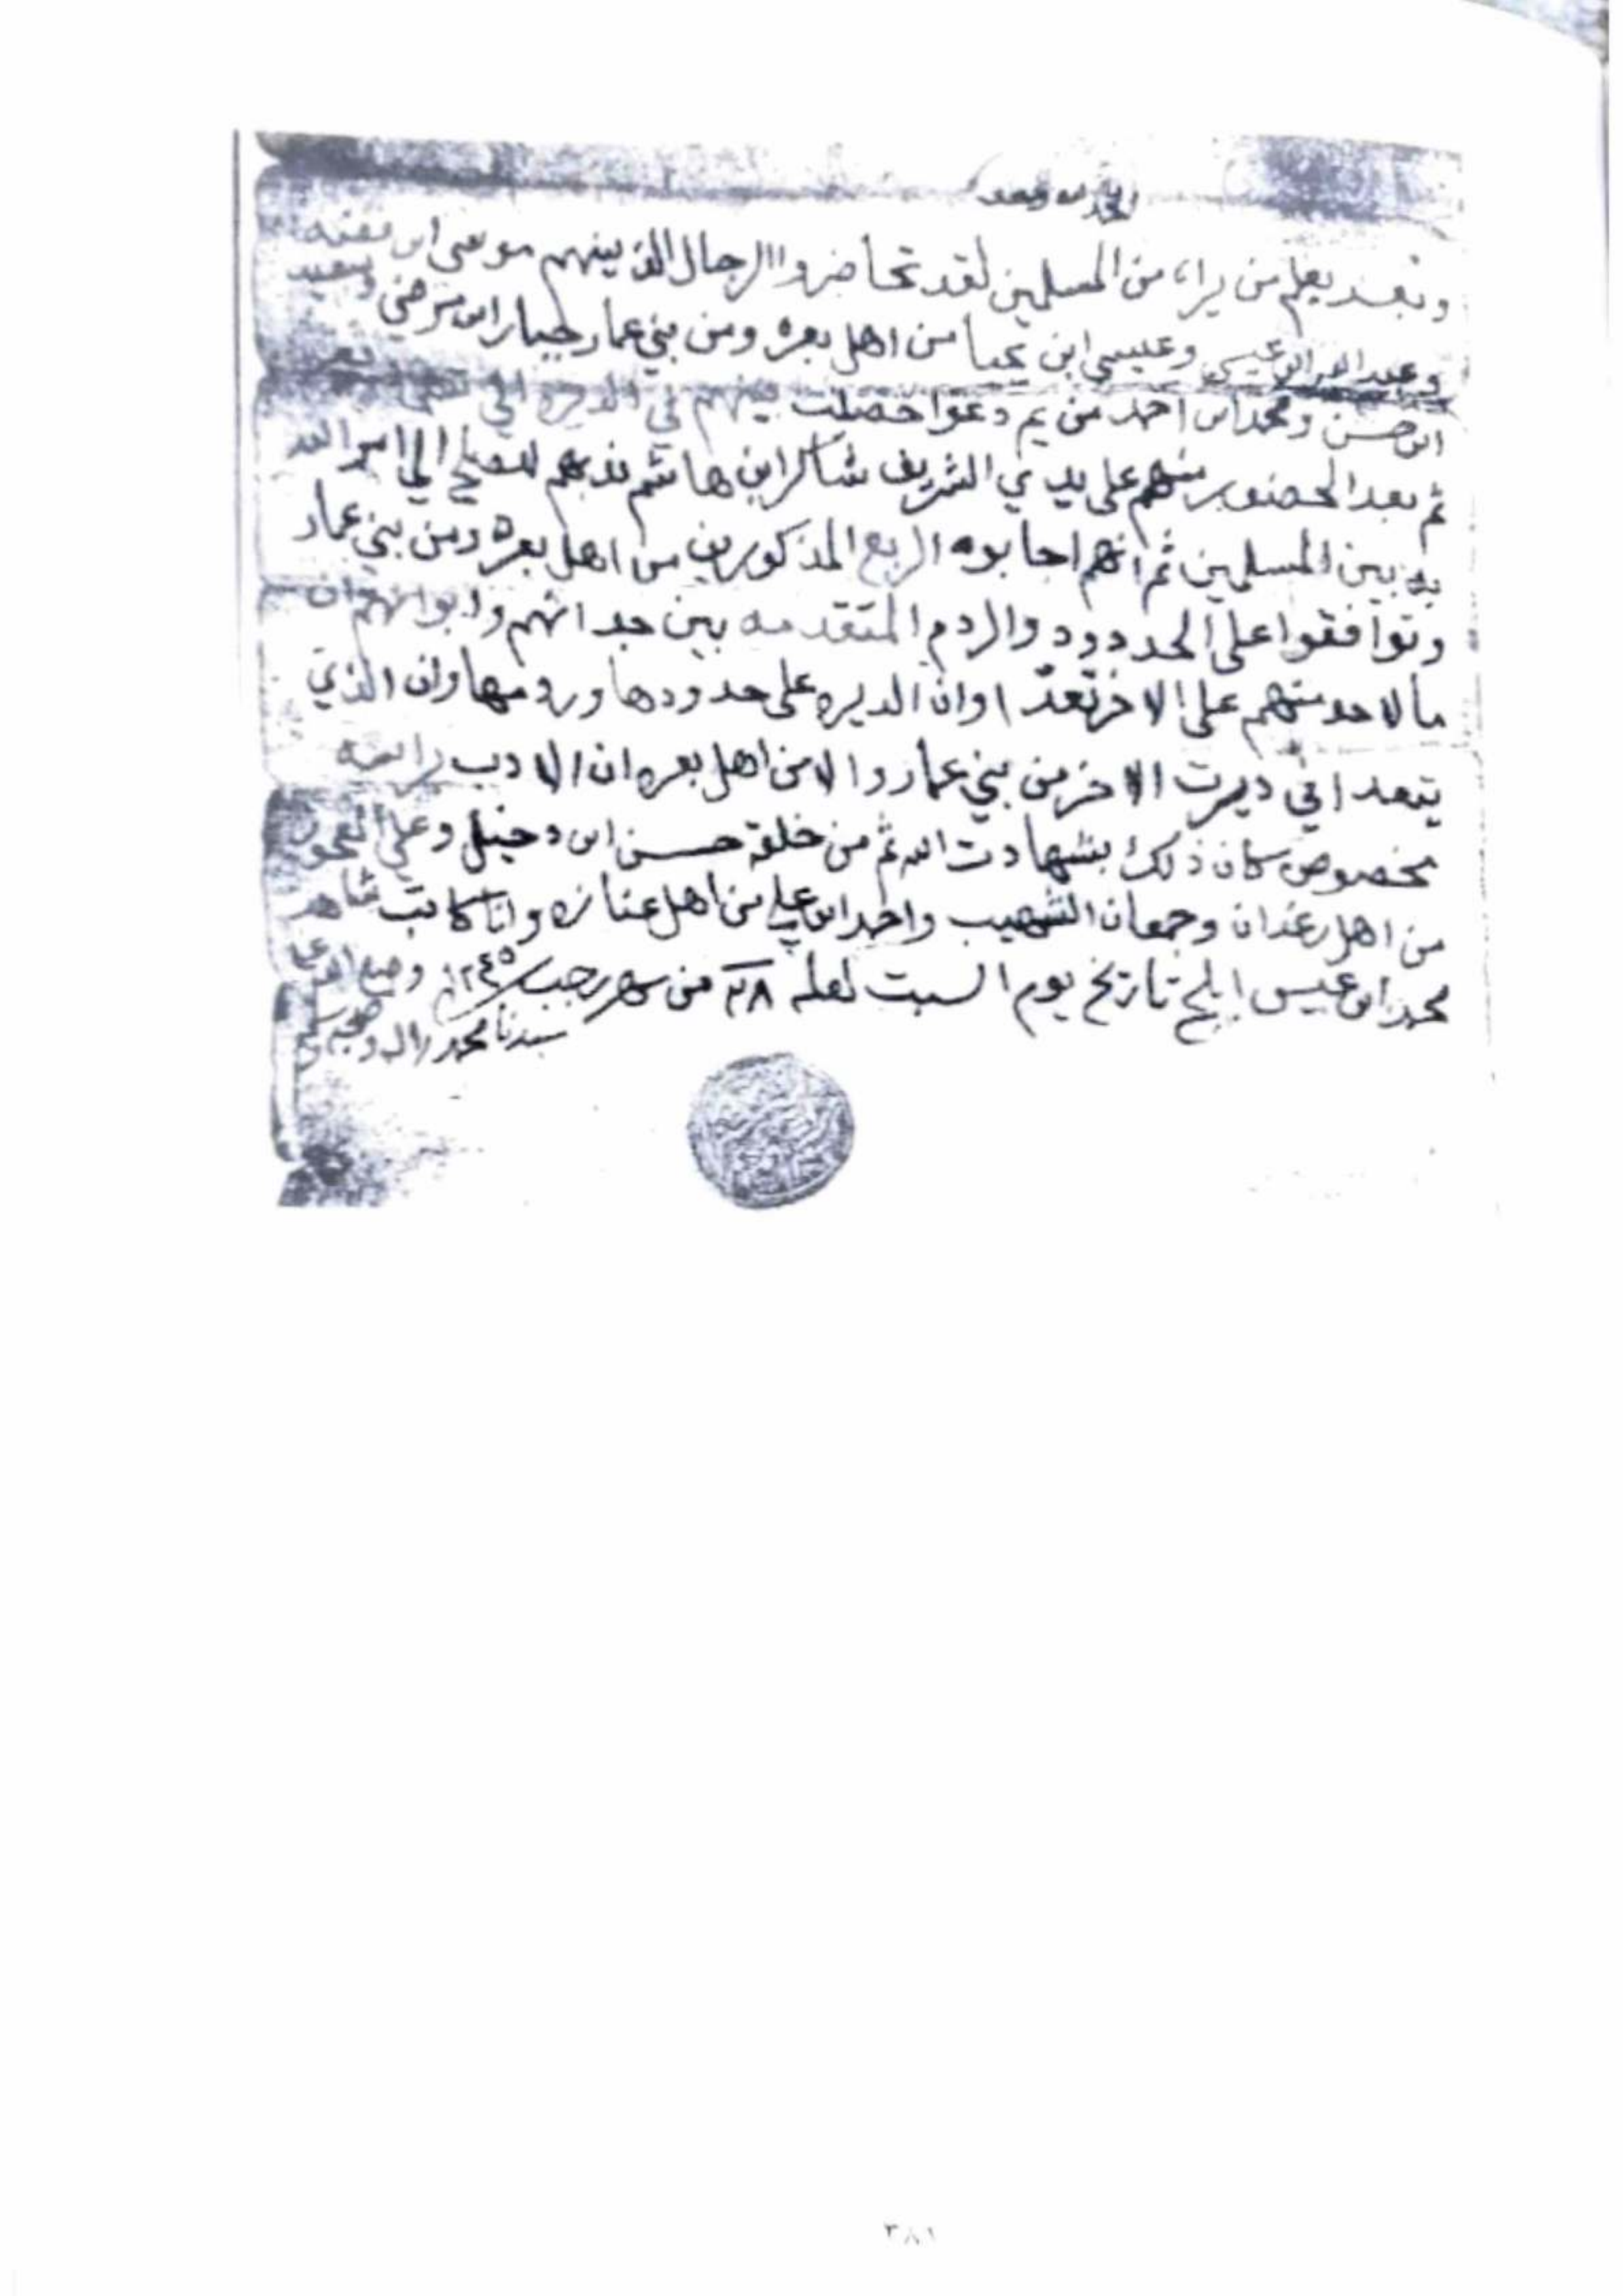 الحمد لله وحده
وبعد يعلم من يراه من المسلمين لقد تحاضروا الرجال الذ بينهم موسى ابن
وعبد الله ابن عيسى وعيسى ابن يحيا من اهل بعره ومن بني عمار جبار ابن مرضي وسعيد
ابن حسن ومحمد ابن احمد من يم دعوا حصلت بينهم في الديره
ثم بعد الحضور منهم على يدي الشريف شاكر ابن هاشم ندبهم للصلح الى امر الله
به بين المسلمين ثم انهم اجابوه الربع المذكورين من اهل بعره ومن بني عمار
وتوافقوا على الحدود والردم المتقدمه بين جدانهم وابوانهم وان
مالاحد منهم على الاخر تعدا وان الديره على حدودها ورومها وان الذي
يتعدا في ديرت الاخر من بني عمار والا من اهل بعره ان الادب
بخصوص كان ذلك بشهادت الله ثم من خلقه حسن ابن دخيل وعلي
من اهل رغدان وجمعان الشهيب واحمد ابن علي من اهل عنازه وانا كاتب شاهد
محمد ابن عيسى ابلج تاريخ يوم السبت لعله ٢٨ من شهر رجب ١٢٤٥ وصلى الله على
سيدنا محمد واله وصحبه وسلم
٣٨١